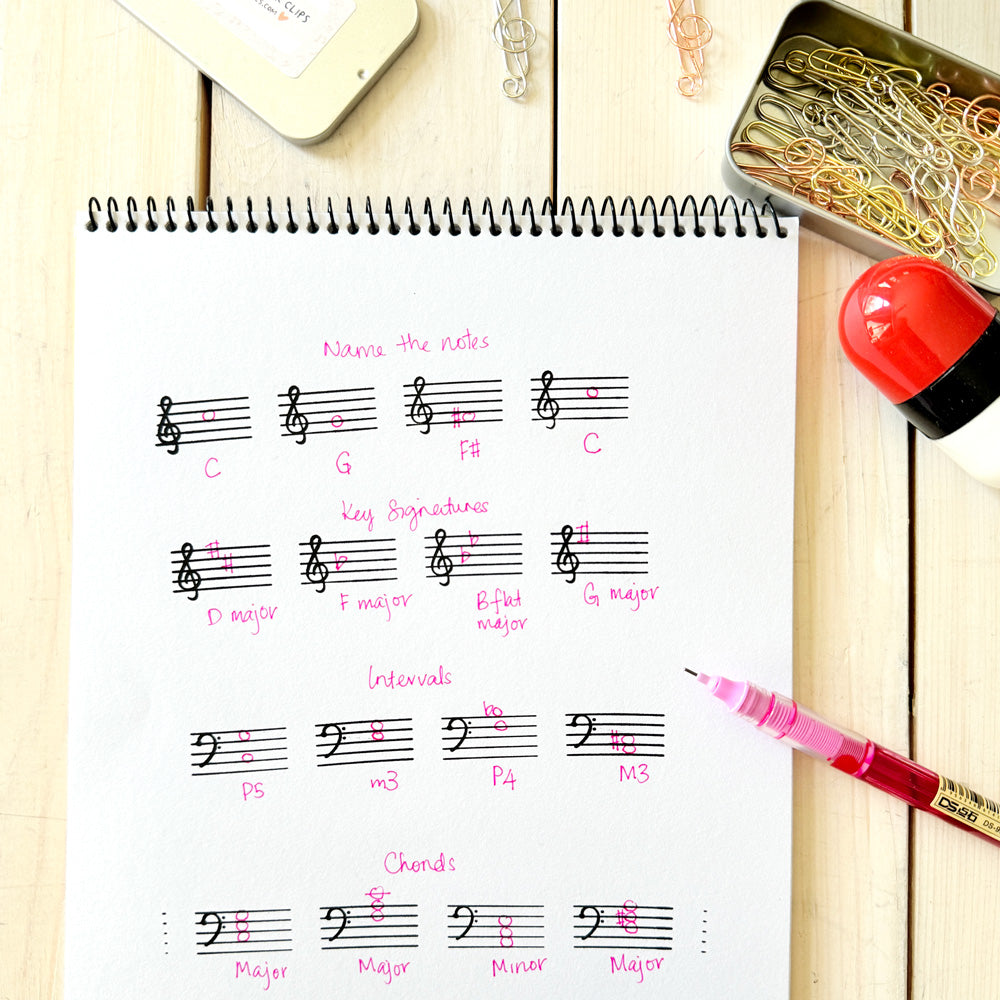 CLIPS
Name the notes
C G F# C
Key Signatures
D major F major B flat major G major
Intervals
P5 m3 P4 M3
Chords
Major Major Minor Major